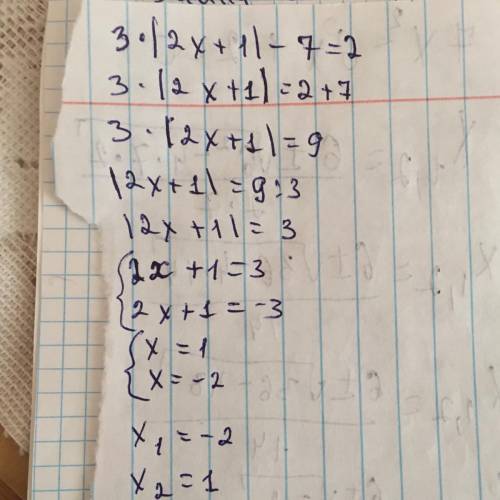 3·|2x+1|-7=2
3·|2x+1|=2+7
3·|2x+1|=9
|2x+1|=9:3
|2x+1|=3
{2x+1=3
2x+1=-3
{x=1
x=-2
x₁=-2
x₂=1